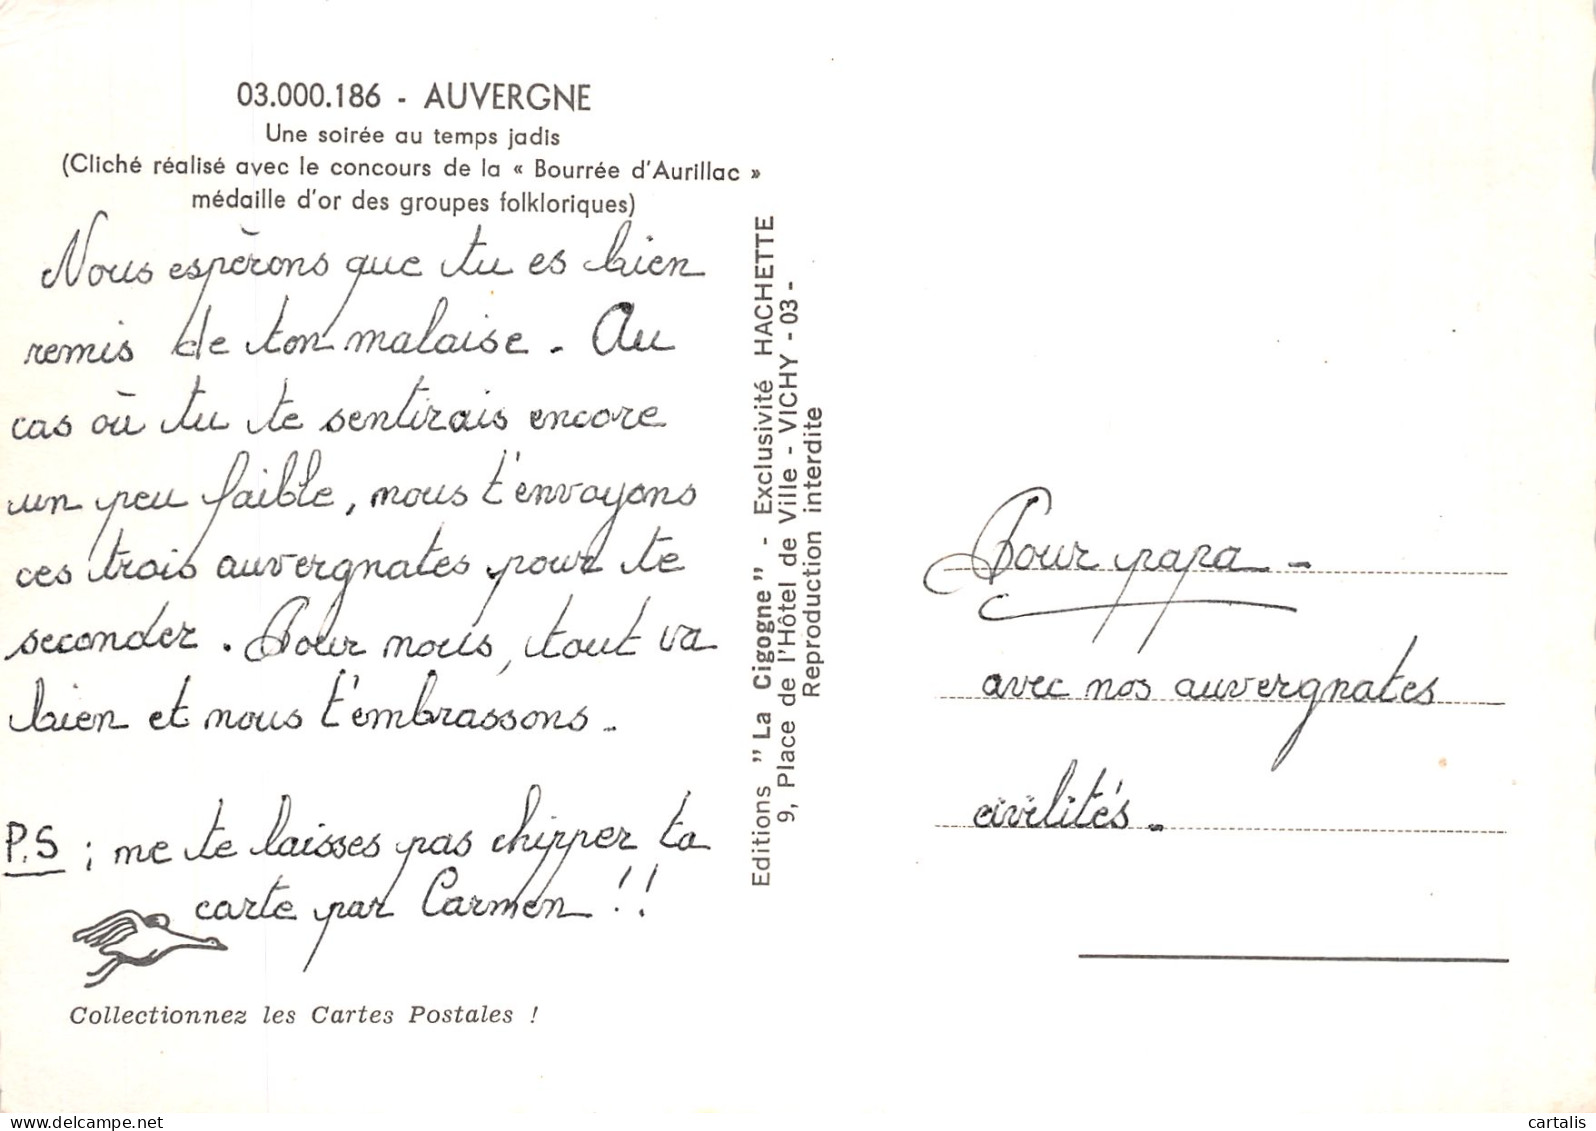 03.000.186 - AUVERGNE
Une soirée au temps jadis
(Cliché réalisé avec le concours de la « Bourrée d'Aurillac »
médaille d'or des groupes folkloriques)
Nous espèrons que tu es bien
remis de ton malaise. Au
cas où tu te sentirais encore
un peu faible, nous t'envoyons
ces trois auvergnates pour te
seconder. Pour nous, tout va
bien et nous t'embrassons.
P.S ; ne te laisses pas chipper ta
carte par Carmen !!
Collectionnez les Cartes Postales !
Editions "La Cigogne" - Exclusivité HACHETTE
9, Place de l'Hôtel de Ville - VICHY - 03 -
Reproduction interdite
Pour papa -
avec nos auvergnates
civilités.
delcampe.net
cartalis